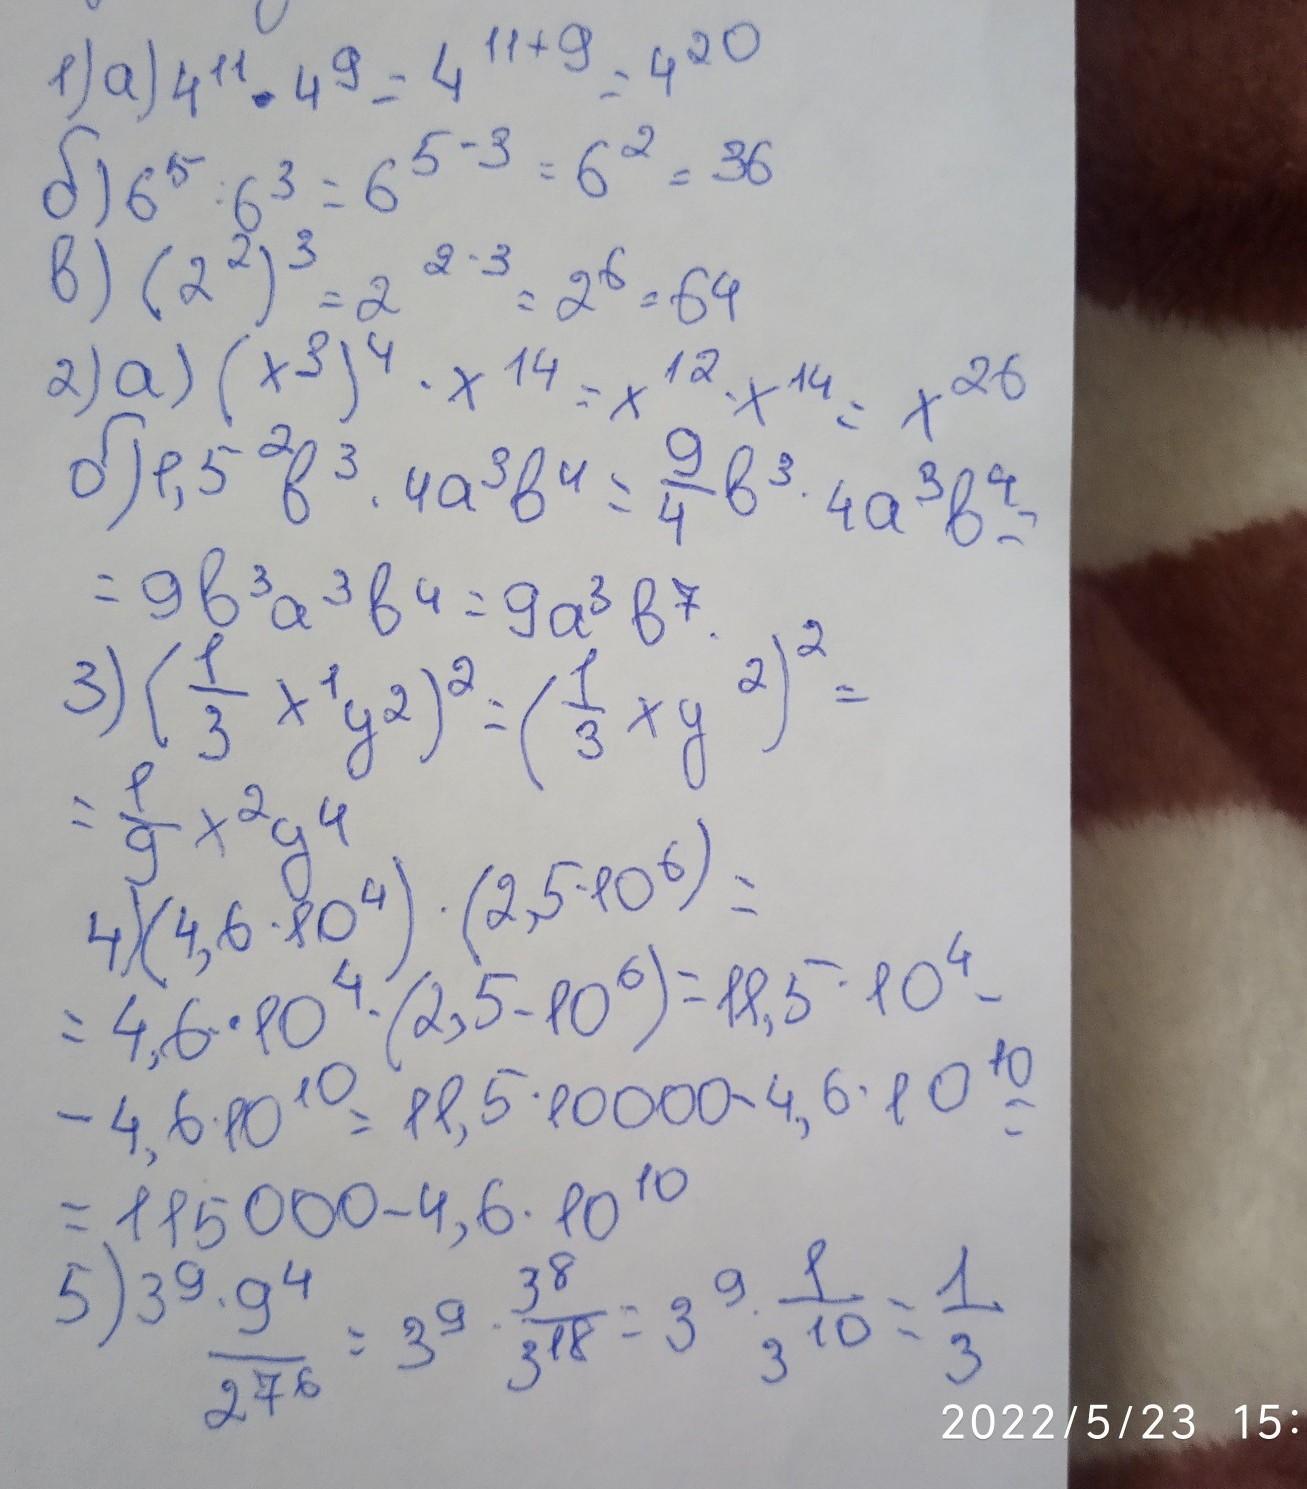 1) а) 4¹¹ · 4⁹ = 4¹¹⁺⁹ = 4²⁰
б) 6⁵ : 6³ = 6⁵⁻³ = 6² = 36
в) (2²)³ = 2²·³ = 2⁶ = 64
2) а) (x³)⁴ · x¹⁴ = x¹² · x¹⁴ = x²⁶
б) 1,5²в³ · 4а³в⁴ = 9/4 в³ · 4а³в⁴ =
= 9в³а³в⁴ = 9а³в⁷.
3) (1/3 x¹y²)² = (1/3 xy²)² =
= 1/9 x²y⁴
4) (4,6 · 10⁴) · (2,5 · 10⁶) =
= 4,6 · 10⁴ · (2,5 - 10⁶) = 11,5 · 10⁴ -
- 4,6 · 10¹⁰ = 11,5 · 10000 - 4,6 · 10¹⁰ =
= 115000 - 4,6 · 10¹⁰
5) 3⁹ · 9⁴/27⁶ = 3⁹ · 3⁸/3¹⁸ = 3⁹ · 1/3¹⁰ = 1/3
2022/5/23 15: